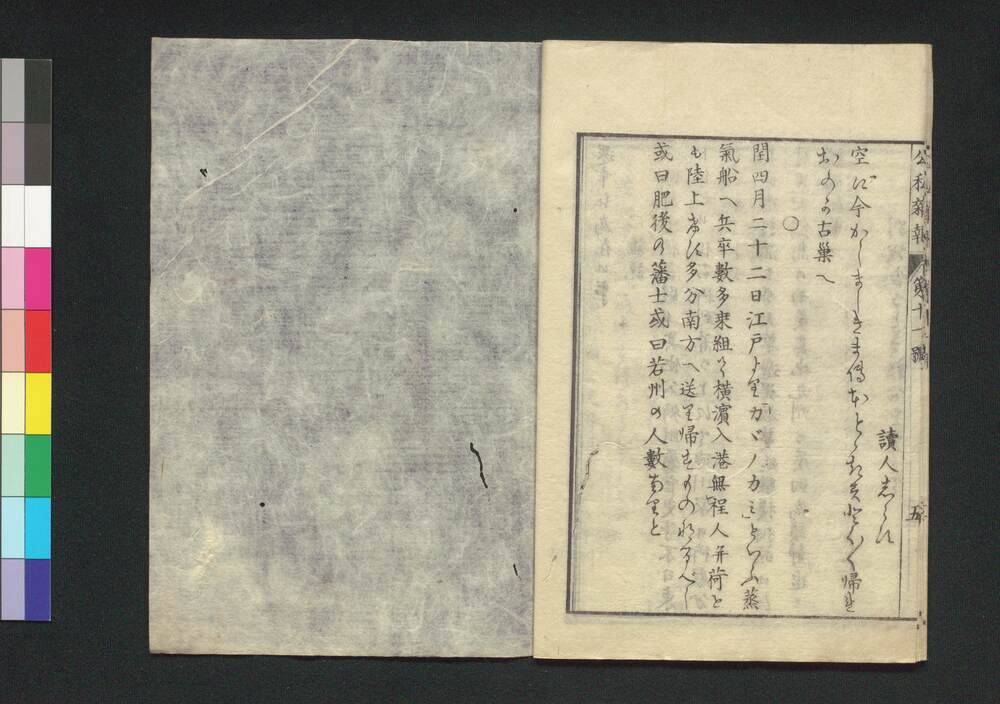 公私雑報 第十一號
五
讀人志らす
空に今かしましきまで
帰れ
おのが古巣へ
○
閏四月二十二日江戸より「カヾノカミ」といふ蒸
氣船へ兵卒數多乗組て横濱入港無程人并荷と
も陸上
多分南方へ送り帰すものなるべし
或曰肥後の藩士或曰若州の人數ありと